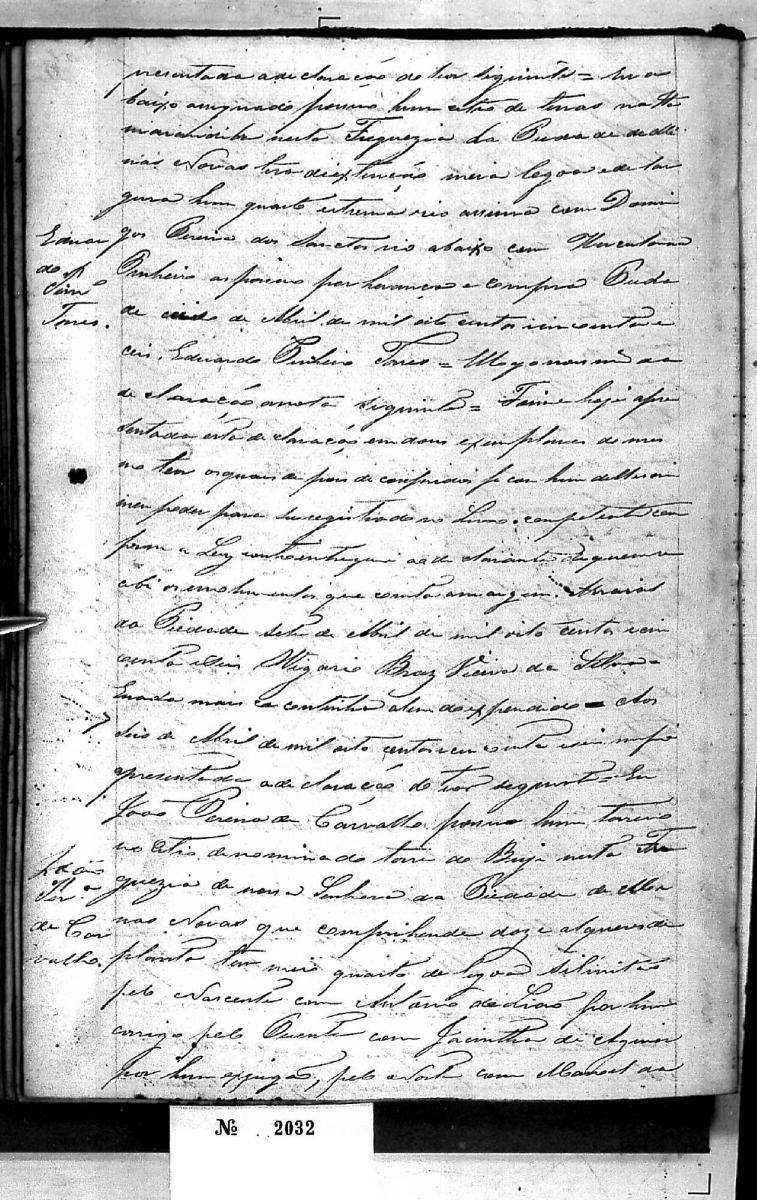 presentada a declaração do teor siguinte = Eu a
baixo assignado possuo hum citio de terras na
nesta Freguezia da Piedade de Mi
nas Novas tera de extenção meia legoa e de lar
gura hum quarto estrema rio assima com Domin
gos Pereira dos Sanctos rio abaixo com Herculana
Pinheiro as possuo por herança e compra Pieda
de de Abril de mil oito centos e cincoenta e
ceis. Eduardo Pinheiro Torres =
declaração a nota siguinte = Foime hoje apre
sentada esta declaração em dous exemplares do mes
mo teor os quais de pois de conferidos ficou hum delles em
meu poder para ser registrado no Livro competente con
forme a Ley e outro entreguei ao declarante de quem re
cebi os emolumentos que consta a margem. Arraial
da Piedade sete de Abril de mil oito centos e cin
coenta e seis Vigario Braz Vieira da Silva =
E nada mais se continha alem do expendido = Aos
seis de Abril de mil oito centos e cincoenta e seis me foi
apresentada a declaração do teor seguinte = Eu
João Pereira de Carvalho possuo hum terreno
no citio denominado torre do nesta Fre
guezia de nossa Senhora da Piedade de Mi
nas Novas que comprihende doze alqueres de
planta tem meio quarto de legoa se limita
pelo Nascente com Antonio de por hum
corrigo pelo Puente com Jacintha de Aguiar
por hum espigão, pelo Norte com Manoel da
Eduar
do P
Pinro
Torres.
João
Per.a
de Car
valho.
No 2032